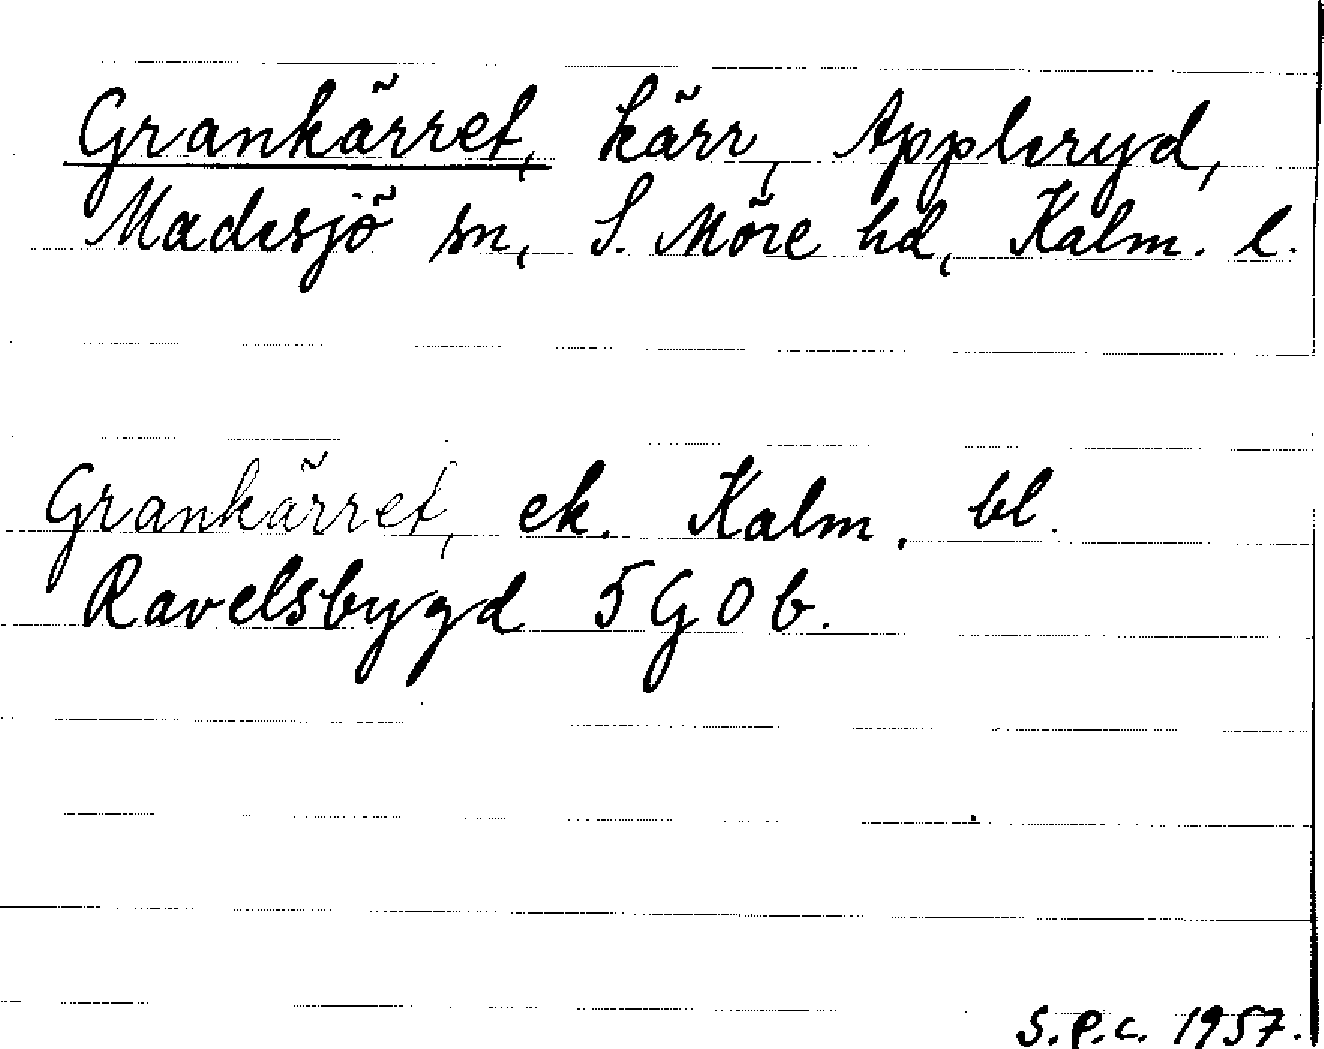 Grankärret, kärr, Appleryd,
Madesjö sn, S. Möre hd, Kalm. l.
Grankärret, ek. Kalm. bl.
Ravelsbygd 5 G 0 b.
S.P.C. 1957.